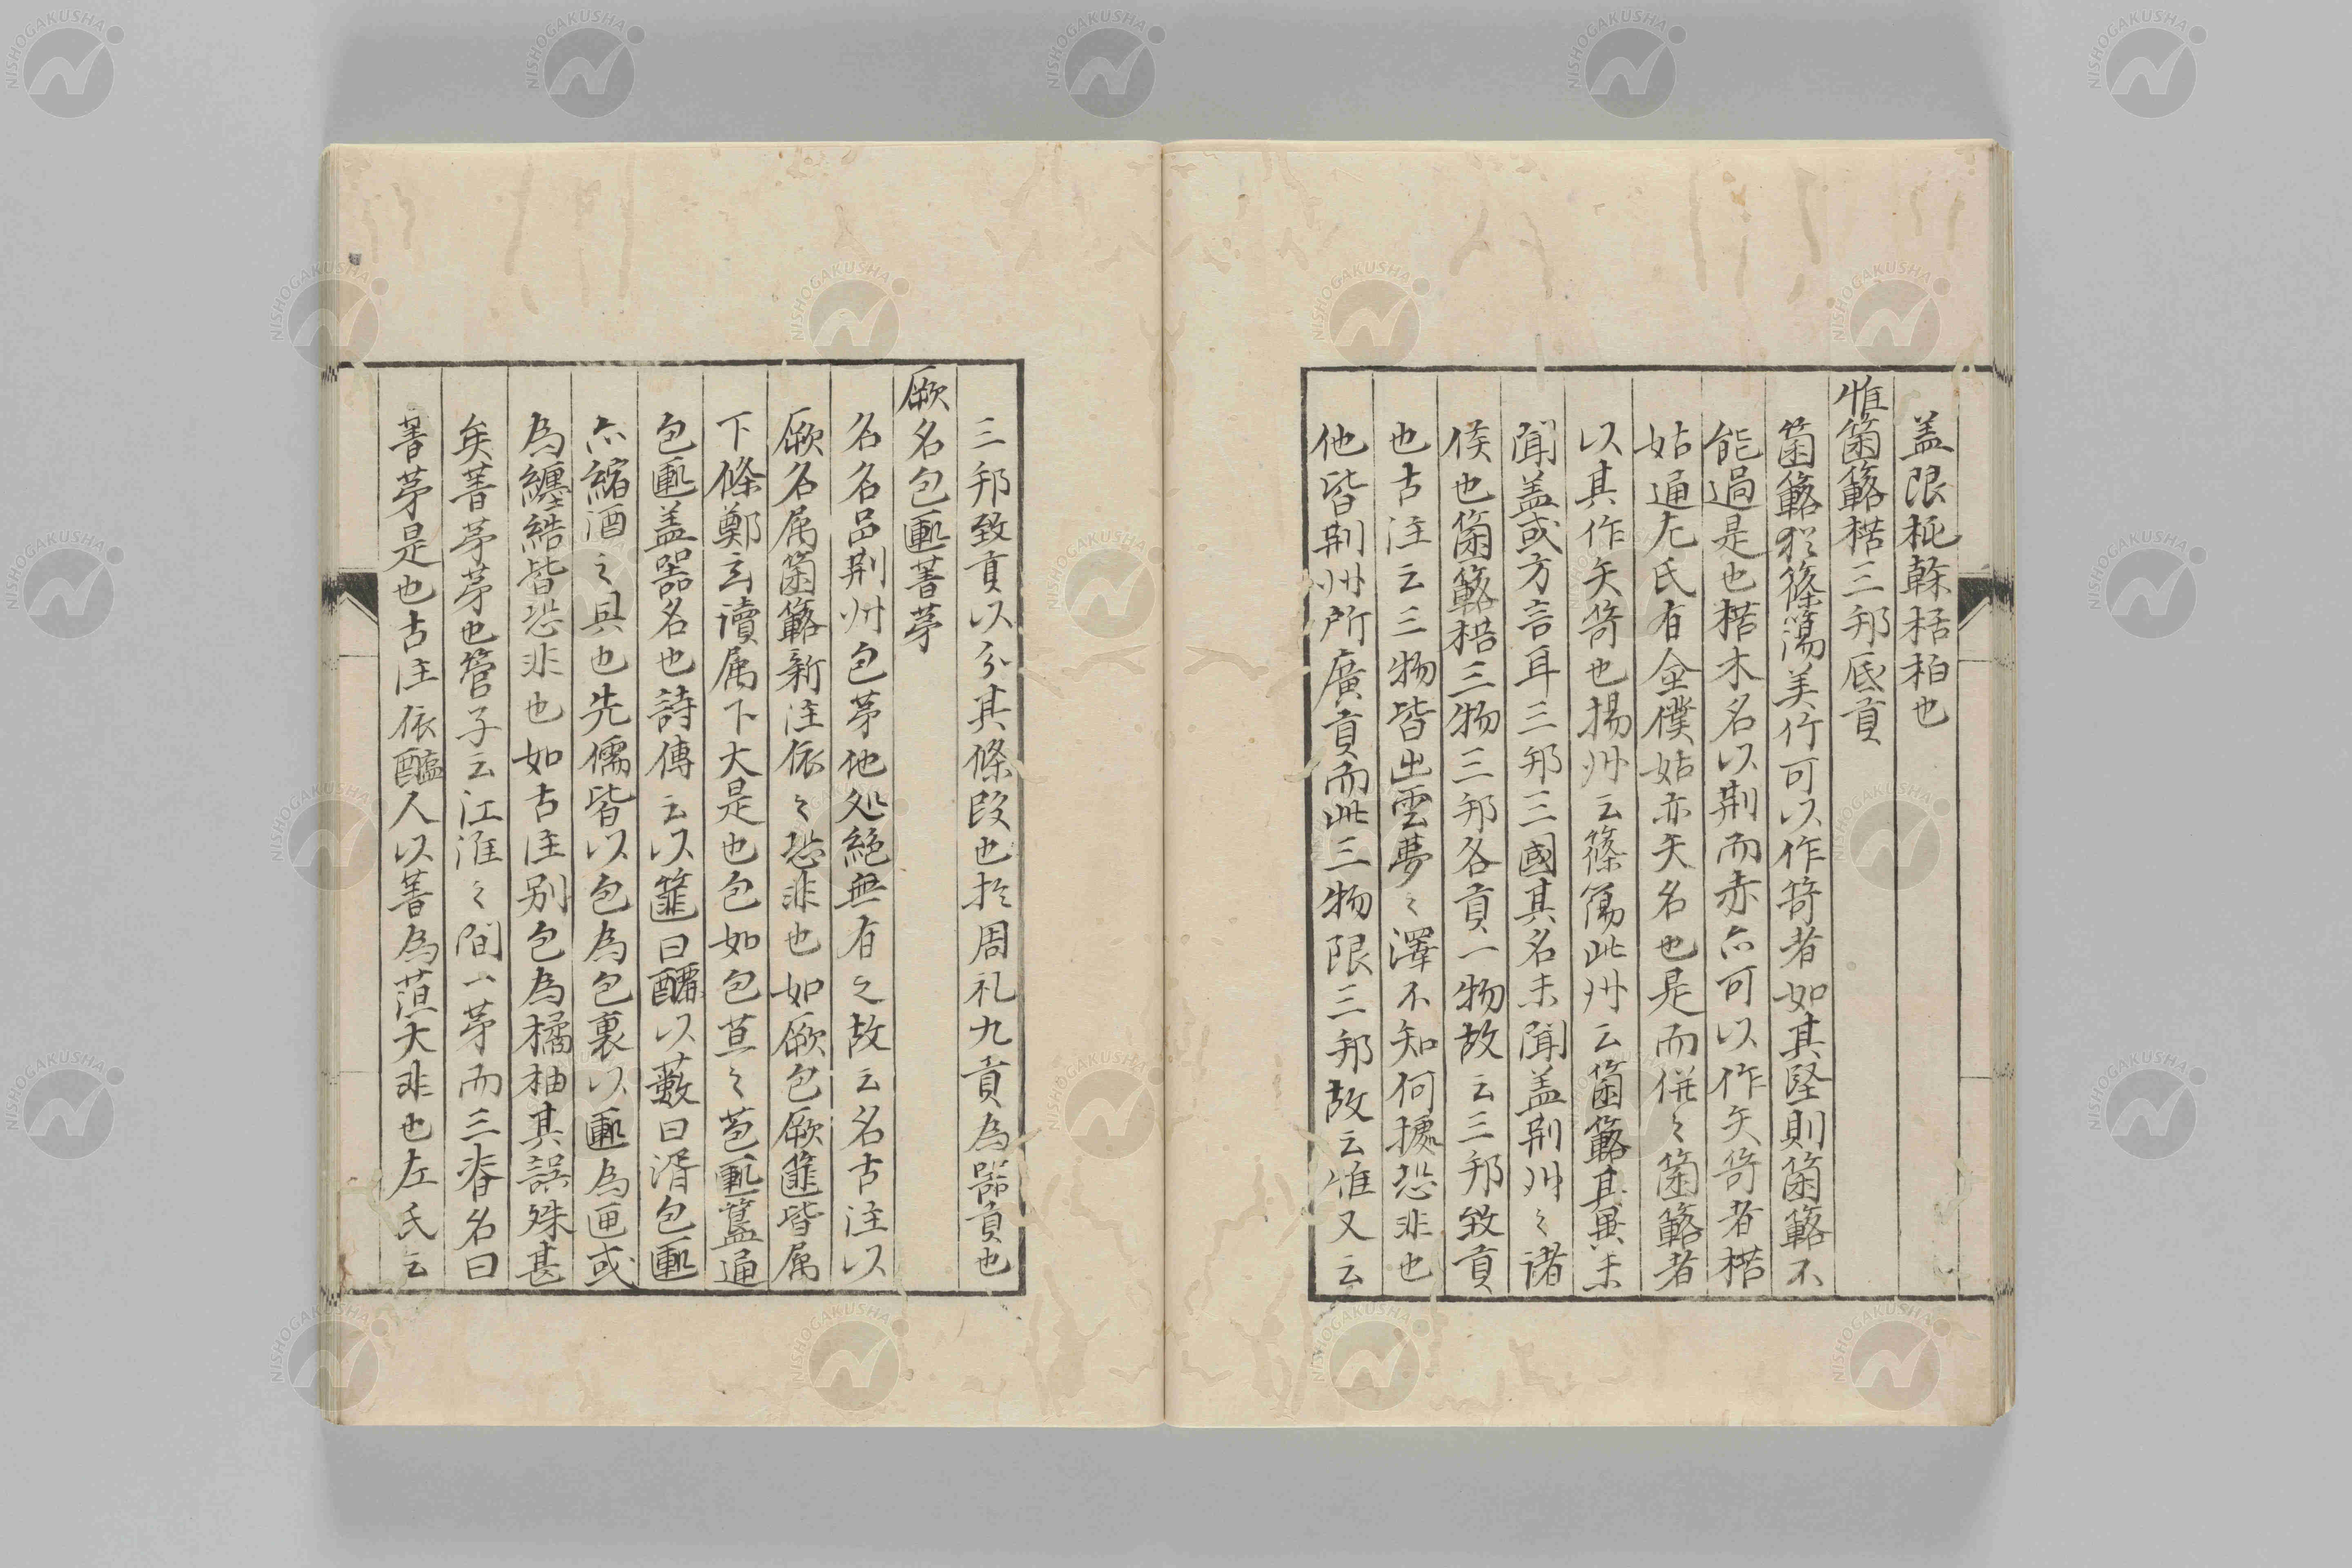 盖限杶榦栝柏也
惟箘簵楛三邦底貢
箘簵猶篠簜美竹可以作笴者如其堅則箘簵不
能過是也楛木名以荆而赤亦可以作矢笴者楛
姑通左氏有金僕姑亦矢名也是而併々箘簵者
以其作矢笴也揚州云篠簜此州云箘簵其異未
聞盖或方言耳三邦三國其名未聞盖荆州々諸
侯也箘簵楛三物三邦各貢一物故云三邦致貢
也古注云三物皆出雲夢々澤不知何據恐非也
他皆荆州所廣貢而此三物限三邦故云惟又云
三邦致貢以分其條段也於周礼九貢為器貢也
厥名包匭菁茅
名名品荆州包茅他処絶無有之故云名古注以
厥名属箘簵新注依々恐非也如厥包厥篚皆属
下條鄭玄讀属下大是也包如包苴々苞匭簋通
包匭盖器名也詩傳云以篚曰釃以藪曰湑包匭
亦縮酒之具也先儒皆以包為包裹以匭為匣或
為纏結皆恐非也如古注别包為橘柚其誤殊甚
矣菁茅茅也管子云江淮々間一茅而三脊名曰
菁茅是也古注依醢人以菁為菹大非也左氏云